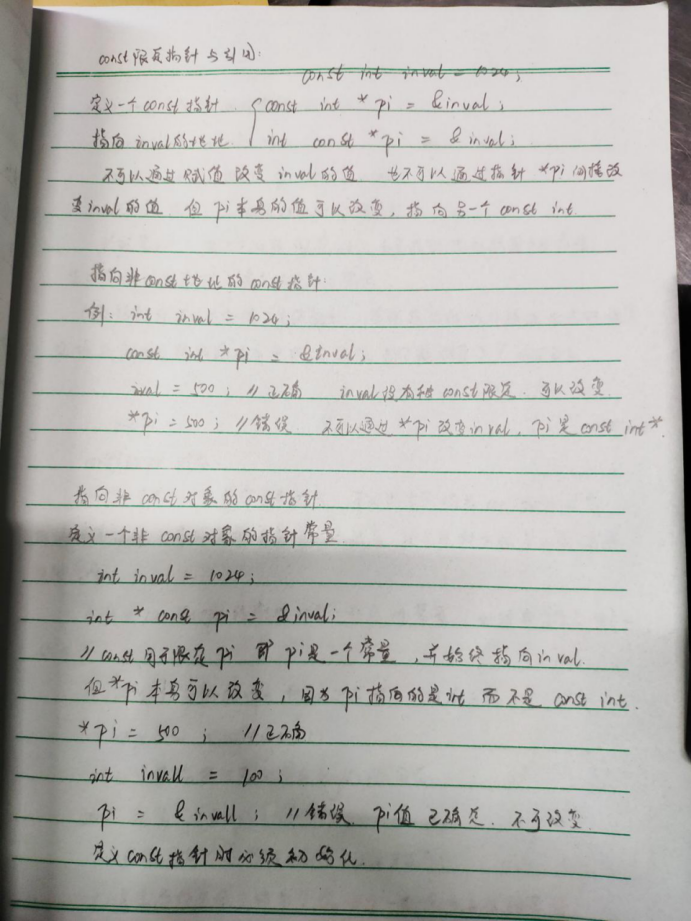 const限定指针与引用:
const int inval = 1024;
定义一个const指针 { const int *pi = &inval;
指向inval的地址 int const *pi = &inval;
不可以通过赋值改变inval的值 也不可以通过指针*pi间接改
变inval的值 但pi本身的值可以改变, 指向另一个const int
指向非const地址的const指针:
例: int inval = 1024;
const int *pi = &inval;
ival = 500; //正确 inval没有被const限定, 可以改变
*pi = 500; //错误 不可以通过*pi改变inval, pi是const int*.
指向非const对象的const指针
定义一个非const对象的指针常量
int inval = 1024;
int * const pi = &inval;
//const用于限定pi 即pi是一个常量, 并始终指向inval.
但*pi本身可以改变, 因为pi指向的是int 而不是const int.
*pi = 500; //正确
int invall = 100;
pi = &invall; //错误. pi值已确定. 不可改变.
定义const指针时必须初始化.